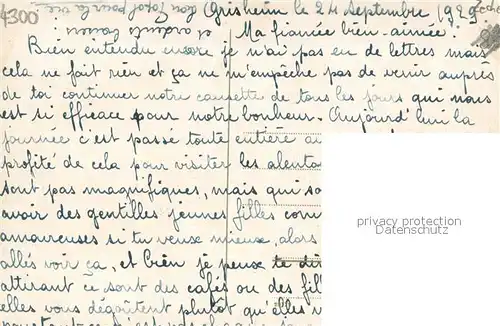 4300
Grisheim le 24 Septembre 1929
Ma fiancée bien-aimée !
Bien entendu encore je n'ai pas eu de lettres mais
cela ne fait rien et ça ne m'empêche pas de venir auprès
de toi continuer notre causette de tous les jours qui nous
est si efficace pour notre bonheur. Aujourd'hui la
journée c'est passé toute entière au
profité de cela pour visiter les alento
sont pas magnifiques, mais qui so
avoir des gentilles jeunes filles com
amoureuses si tu veux mieux, alors
allés voir ça, et bien je peux te dis
attirant ce sont des cafés ou des fill
elles vous dégoûtent plutôt qu'elles v
privacy protection
Datenschutz